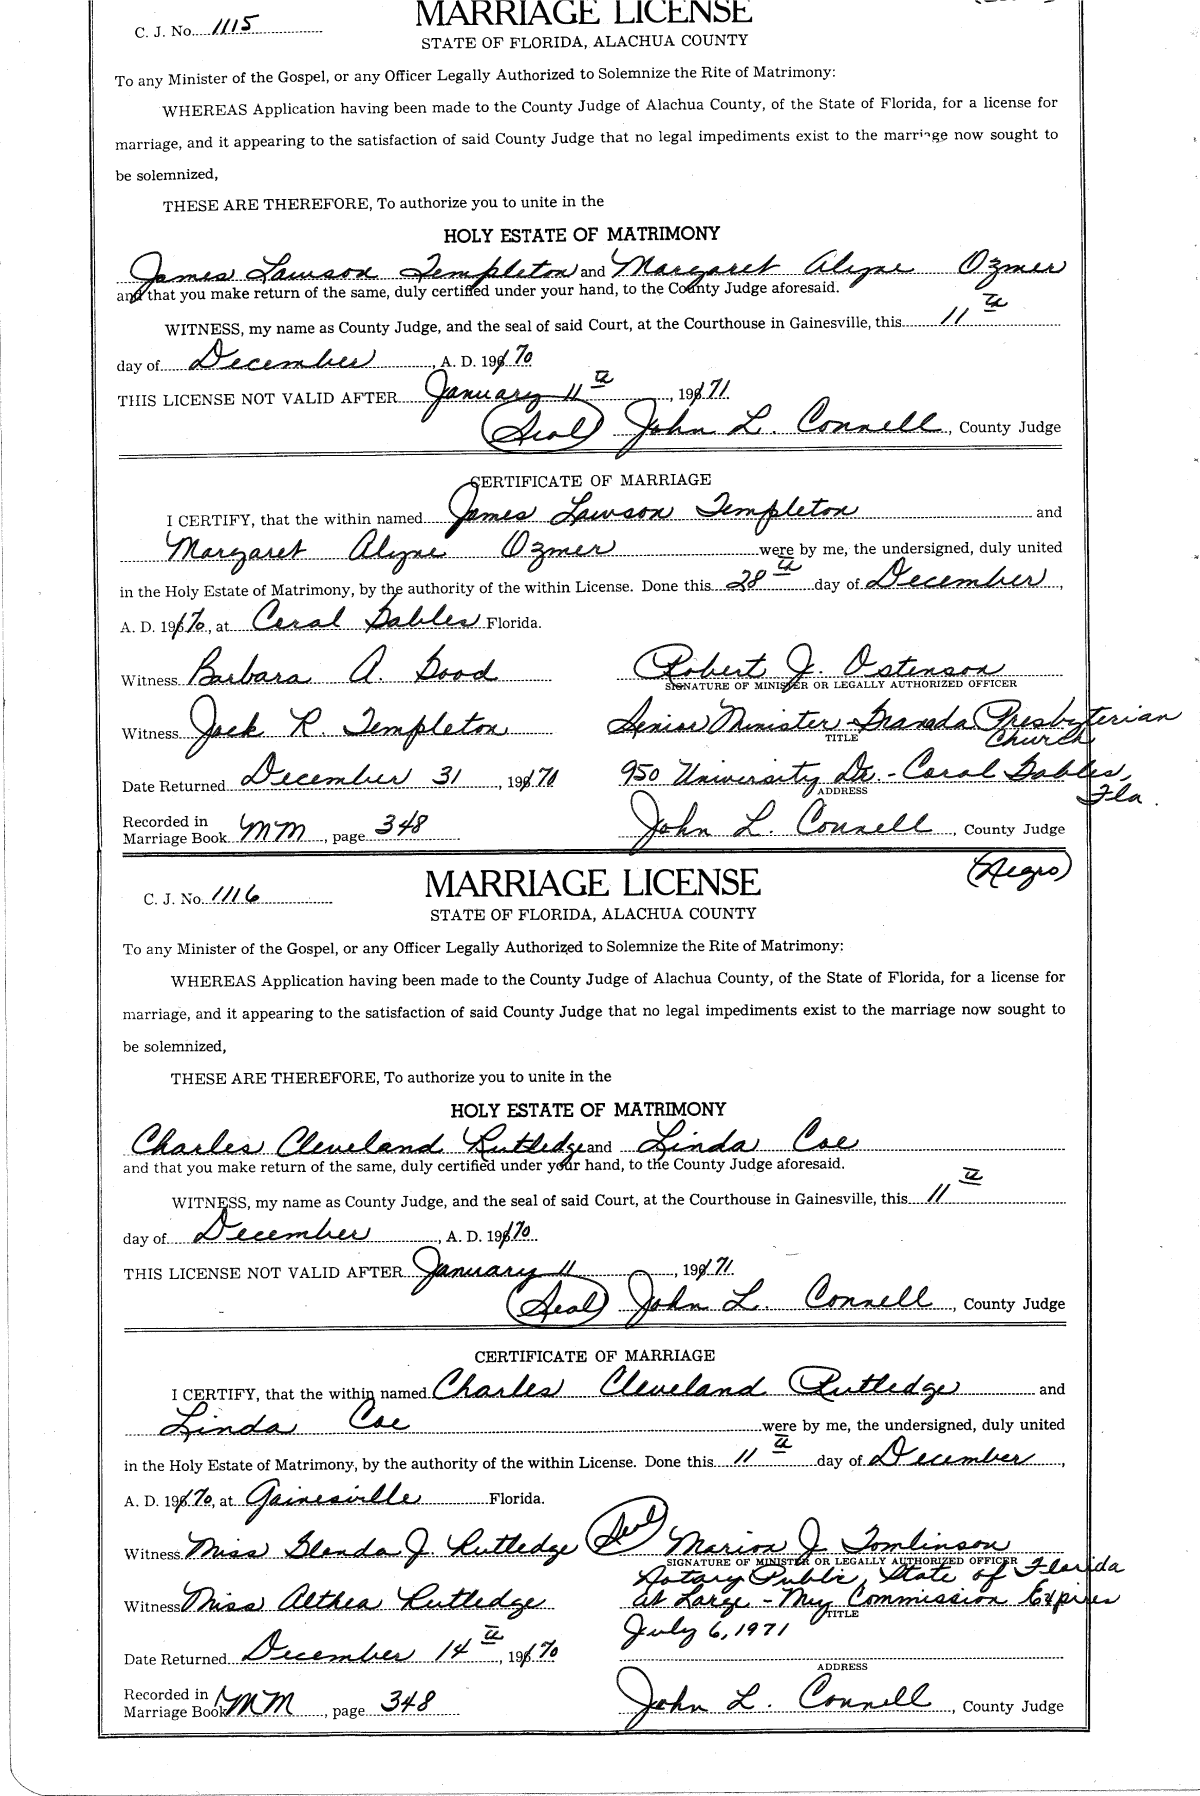 C. J. No. 1115
MARRIAGE LICENSE
STATE OF FLORIDA, ALACHUA COUNTY
To any Minister of the Gospel, or any Officer Legally Authorized to Solemnize the Rite of Matrimony:
WHEREAS Application having been made to the County Judge of Alachua County, of the State of Florida, for a license for
marriage, and it appearing to the satisfaction of said County Judge that no legal impediments exist to the marriage now sought to
be solemnized,
THESE ARE THEREFORE, To authorize you to unite in the
HOLY ESTATE OF MATRIMONY
James Lawson Templeton and Margaret Alyne Ozmer
and that you make return of the same, duly certified under your hand, to the County Judge aforesaid.
WITNESS, my name as County Judge, and the seal of said Court, at the Courthouse in Gainesville, this 11th
day of December, A. D. 1970
THIS LICENSE NOT VALID AFTER January 11th, 1971.
(Seal) John L. Connell, County Judge
CERTIFICATE OF MARRIAGE
I CERTIFY, that the within named James Lawson Templeton and
Margaret Alyne Ozmer were by me, the undersigned, duly united
in the Holy Estate of Matrimony, by the authority of the within License. Done this 28th day of December,
A. D. 1970, at Coral Gables Florida.
Witness Barbara A. Good Robert J. Ostenson
SIGNATURE OF MINISTER OR LEGALLY AUTHORIZED OFFICER
Witness Jack R. Templeton Senior Minister - Granada Presbyterian Church
TITLE
Date Returned December 31, 1970 950 University Dr. - Coral Gables, Fla.
ADDRESS
Recorded in
Marriage Book MM, page 348 John L. Connell, County Judge
(Negro)
C. J. No. 1116
MARRIAGE LICENSE
STATE OF FLORIDA, ALACHUA COUNTY
To any Minister of the Gospel, or any Officer Legally Authorized to Solemnize the Rite of Matrimony:
WHEREAS Application having been made to the County Judge of Alachua County, of the State of Florida, for a license for
marriage, and it appearing to the satisfaction of said County Judge that no legal impediments exist to the marriage now sought to
be solemnized,
THESE ARE THEREFORE, To authorize you to unite in the
HOLY ESTATE OF MATRIMONY
Charles Cleveland Rutledge and Linda Coe
and that you make return of the same, duly certified under your hand, to the County Judge aforesaid.
WITNESS, my name as County Judge, and the seal of said Court, at the Courthouse in Gainesville, this 11th
day of December, A. D. 1970.
THIS LICENSE NOT VALID AFTER January 11, 1971.
(Seal) John L. Connell, County Judge
CERTIFICATE OF MARRIAGE
I CERTIFY, that the within named Charles Cleveland Rutledge and
Linda Coe were by me, the undersigned, duly united
in the Holy Estate of Matrimony, by the authority of the within License. Done this 11th day of December,
A. D. 1970, at Gainesville Florida.
Witness Miss Glenda J. Rutledge (Seal) Marion J. Tomlinson
SIGNATURE OF MINISTER OR LEGALLY AUTHORIZED OFFICER
Notary Public, State of Florida
Witness Miss Althea Rutledge at Large - My Commission Expires
TITLE
July 6, 1971
Date Returned December 14th, 1970
ADDRESS
Recorded in
Marriage Book MM, page 348 John L. Connell, County Judge